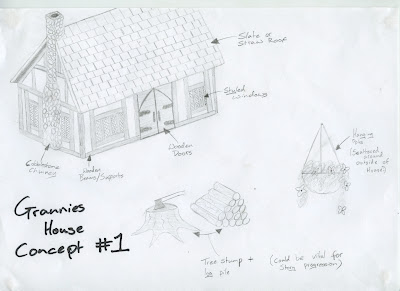 Slate or
Straw Roof
Stained
windows
Wooden
Doors
Cobblestone
Chimney
Wooden
Beams/Supports
Hanging
Pots
(Scattered
around
outside of
House)
Grannies
House
Concept #1
Tree stump +
log pile
(Could be vital for
story progression)